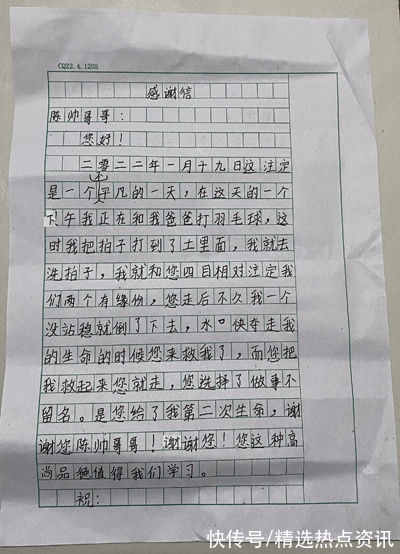 CQ22.4.1205
感谢信
陈帅哥哥：
您好！
二零二二年一月十九日这注定
是一个不平凡的一天，在这天的一个
下午我正在和我爸爸打羽毛球，这
时我把拍子打到了土里面，我就去
洗拍子，我就和您四目相对注定我
们两个有缘份，您走后不久我一个
没站稳就倒了下去，水快夺走我
的生命的时候您来救我了，而您把
我救起来您就走，您选择了做事不
留名。是您给了我第二次生命，谢
谢您陈帅哥哥！谢谢您！您这种高
尚品德值得我们学习。
祝：
快传号/精选热点资讯